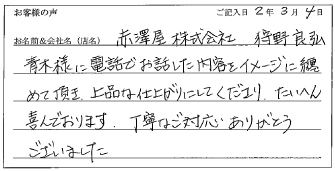 お客様の声 ご記入日 2年 3月 4日
お名前&会社名(店名) 赤澤屋株式会社 狩野良弘
青木様に電話でお話した内容をイメージに纏
めて頂き、上品な仕上がりにしてくださり、たいへん
喜んでおります。丁寧なご対応ありがとう
ございました